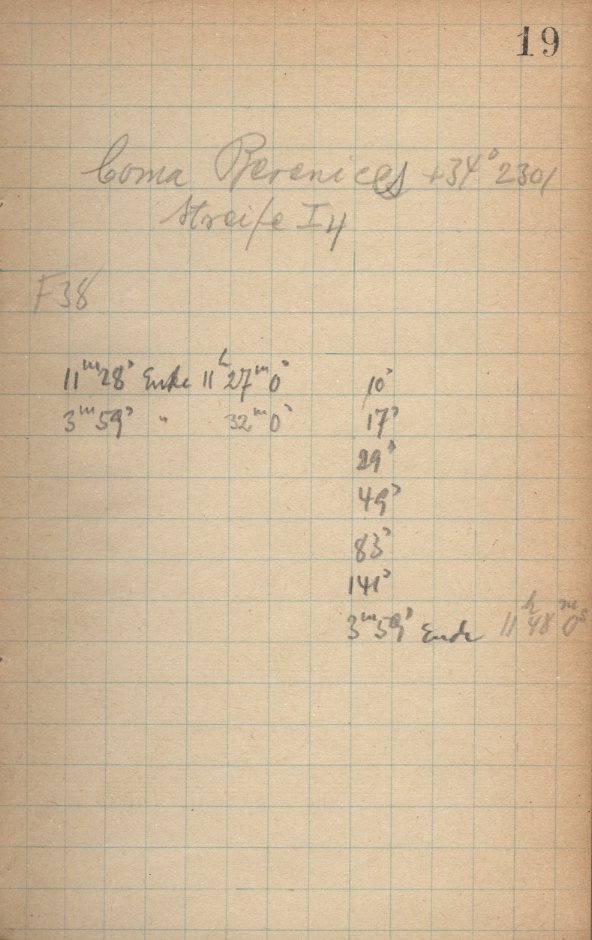 19
Coma Berenices +34° 2301
Streife I 4
F38
11ᵐ28ˢ Ende 11ʰ27ᵐ0ˢ 10ˢ
3ᵐ59ˢ " 32ᵐ0ˢ 17ˢ
29ˢ
49ˢ
83ˢ
141ˢ
3ᵐ59ˢ Ende 11ʰ48ᵐ0ˢ